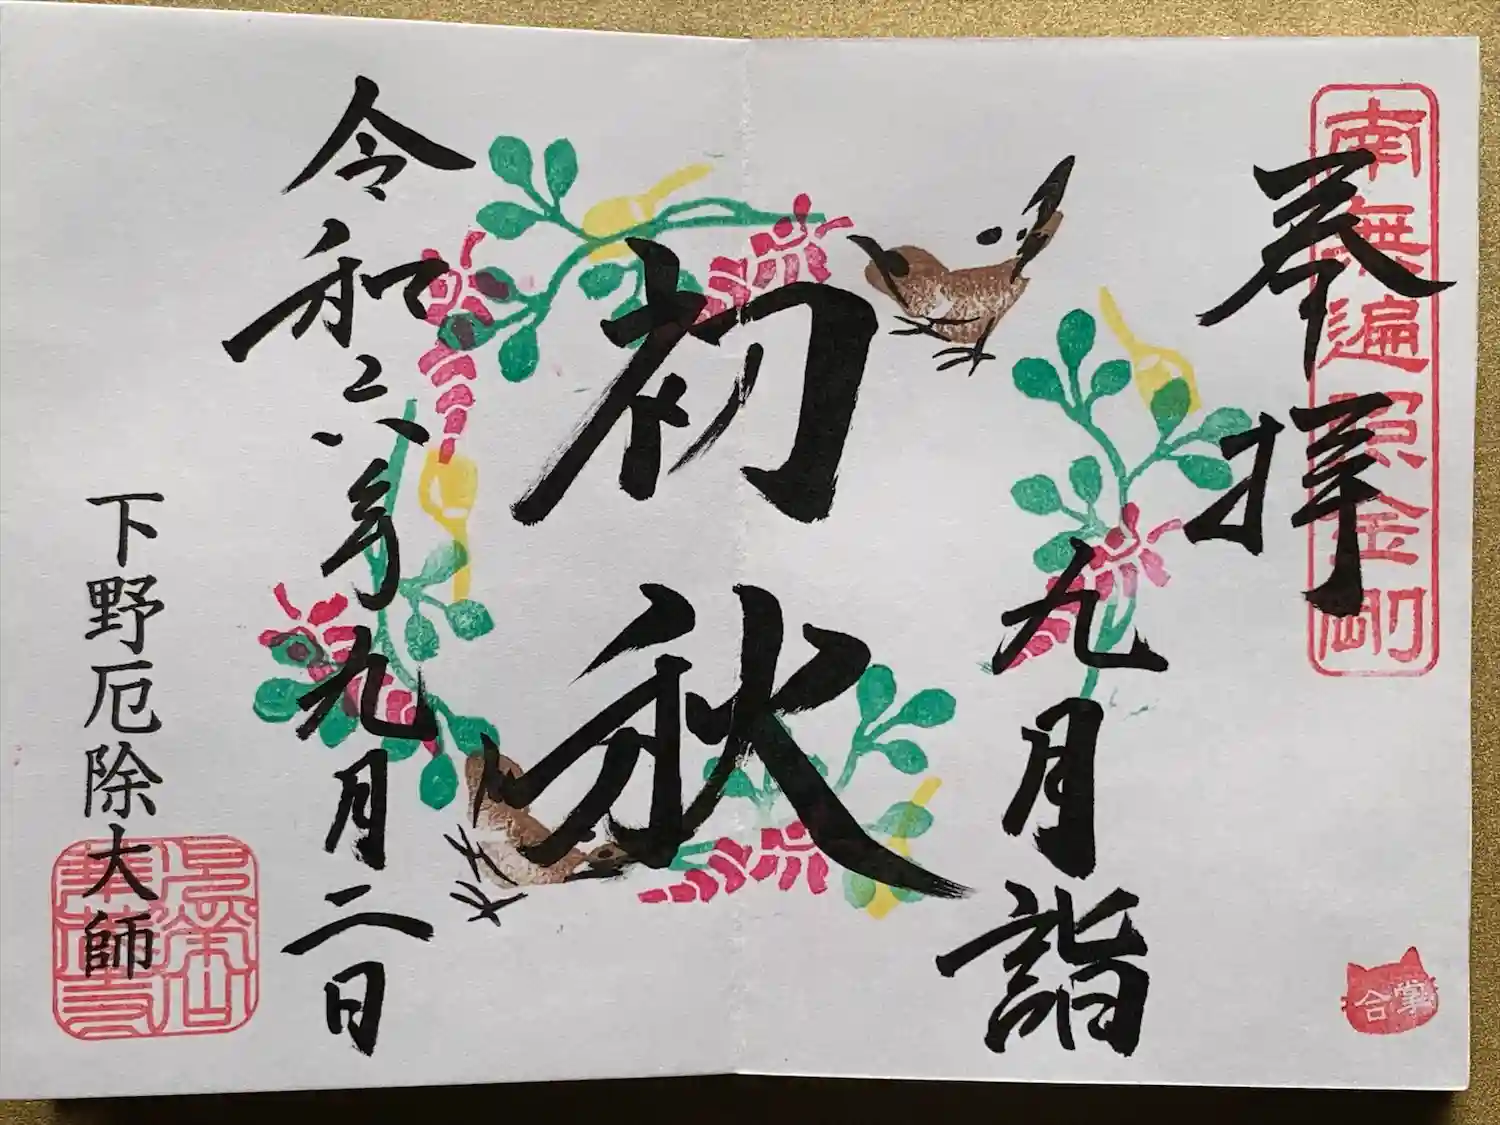 南無遍照金剛
奉拝
合掌
九月詣
初秋
令和六年九月二日
下野厄除大師